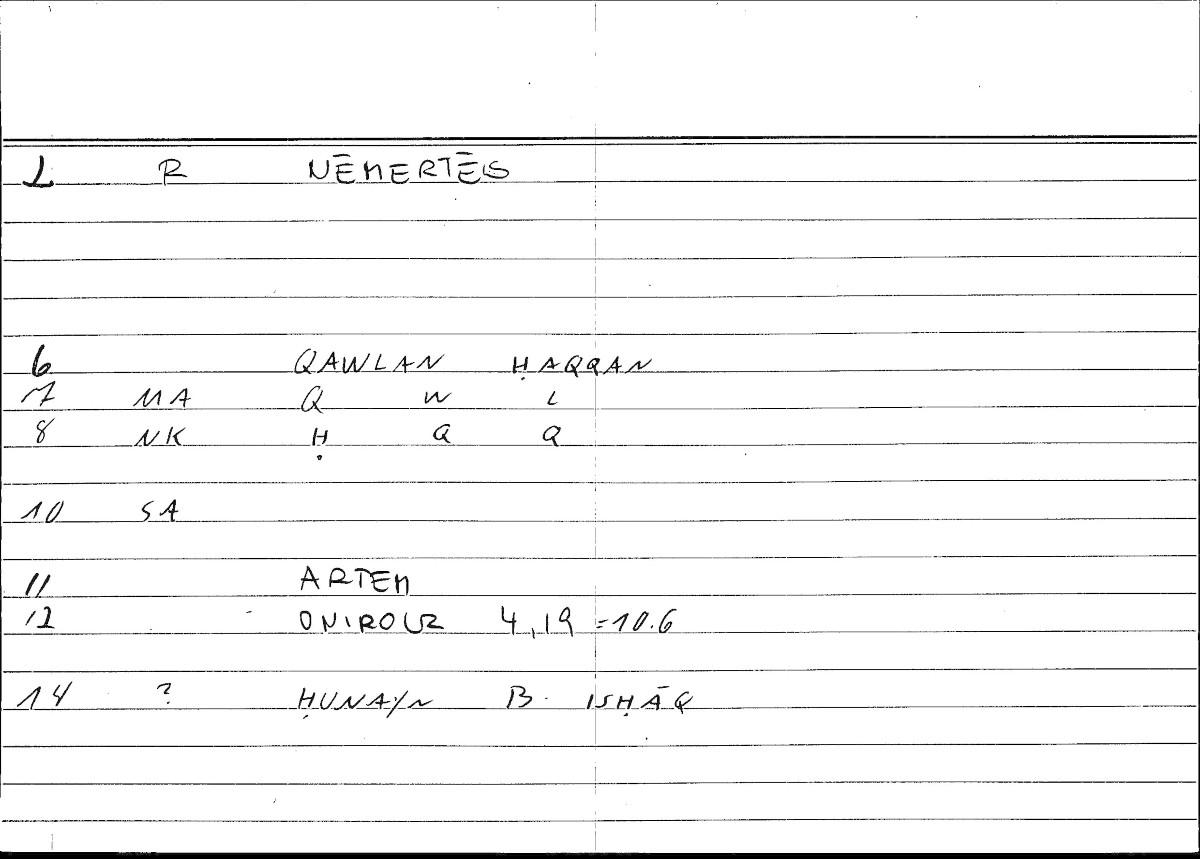 1 R NĒMERTĒS
6 QAWLAN ḤAQQAN
7 MA Q W L
8 NK Ḥ Q Q
10 SA
11 ARTEM
12 ONIROCR 4,19 =10.6
14 ? ḤUNAYN B. ISḤĀQ